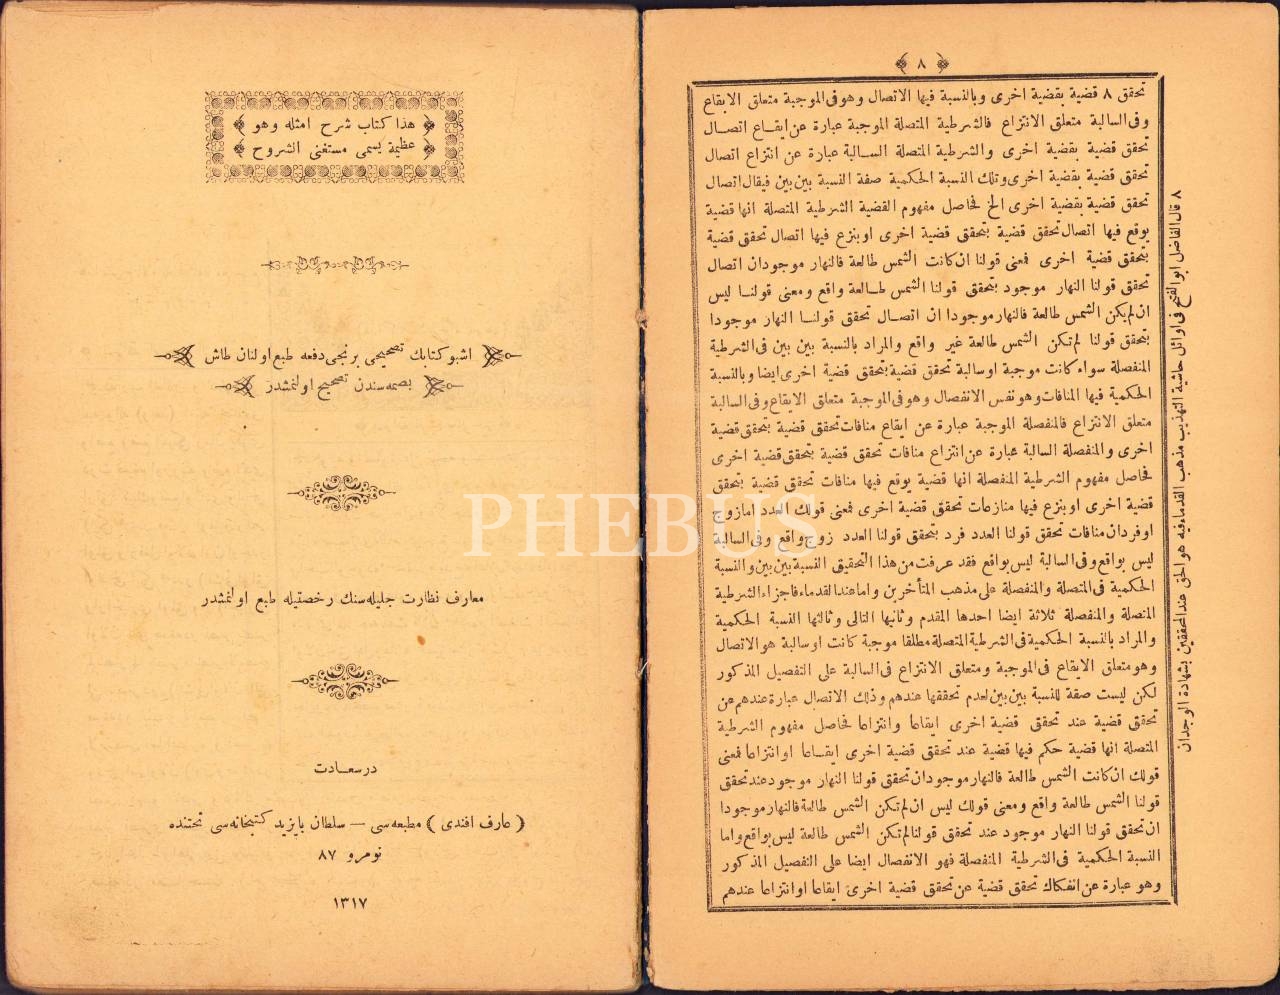 ٨
تحقق ٨ قضية بقضية اخرى وبالنسبة فيها الاتصال وهو فى الموجبة متعلق الايقاع
وفى السالبة متعلق الانتزاع فالشرطية المتصلة الموجبة عبارة عن ايقاع اتصال
تحقق قضية بقضية اخرى والشرطية المتصلة السالبة عبارة عن انتزاع اتصال
تحقق قضية بقضية اخرى وتلك النسبة الحكمية صفة النسبة بين بين فيقال اتصال
تحقق قضية بقضية اخرى الخ فحاصل مفهوم القضية الشرطية المتصلة انها قضية
يوقع فيها اتصال تحقق قضية بتحقق قضية اخرى او ينزع فيها اتصال تحقق قضية
بتحقق قضية اخرى فمعنى قولنا ان كانت الشمس طالعة فالنهار موجود ان اتصال
تحقق قولنا النهار موجود بتحقق قولنا الشمس طالعة واقع ومعنى قولنا ليس
ان لم يكن الشمس طالعة فالنهار موجودا ان اتصال تحقق قولنا النهار موجودا
بتحقق قولنا لم تكن الشمس طالعة غير واقع والمراد بالنسبة بين بين فى الشرطية
المنفصلة سواء كانت موجبة او سالبة تحقق قضية بتحقق قضية اخرى ايضا وبالنسبة
الحكمية فيها المنافات وهو نفس الانفصال وهو فى الموجبة متعلق الايقاع وفى السالبة
متعلق الانتزاع فالمنفصلة الموجبة عبارة عن ايقاع منافات تحقق قضية بتحقق قضية
اخرى والمنفصلة السالبة عبارة عن انتزاع منافات تحقق قضية بتحقق قضية اخرى
فحاصل مفهوم الشرطية المنفصلة انها قضية يوقع فيها منافات تحقق قضية بتحقق
قضية اخرى او ينزع فيها منازعات تحقق قضية اخرى فمعنى قولك العدد اما زوج
او فرد ان منافات تحقق قولنا العدد فرد بتحقق قولنا العدد زوج واقع وفى السالبة
ليس بواقع وفى السالبة ليس بواقع فقد عرفت من هذا التحقيق النسبة بين بين والنسبة
الحكمية فى المتصلة والمنفصلة على مذهب المتأخرين واما عند القدماء فاجزاء الشرطية
المتصلة والمنفصلة ثلاثة ايضا احدها المقدم وثانيها التالى وثالثها النسبة الحكمية
والمراد بالنسبة الحكمية فى الشرطية المتصلة مطلقا موجبة كانت او سالبة هو الاتصال
وهو متعلق الايقاع فى الموجبة ومتعلق الانتزاع فى السالبة على التفصيل المذكور
لكن ليست صفة للنسبة بين بين لعدم تحققها عندهم وذلك الاتصال عبارة عندهم عن
تحقق قضية عند تحقق قضية اخرى ايقاعا وانتزاعا فحاصل مفهوم الشرطية
المتصلة انها قضية حكم فيها قضية عند تحقق قضية اخرى ايقاعا او انتزاعا فمعنى
قولك ان كانت الشمس طالعة فالنهار موجود ان تحقق قولنا النهار موجود عند تحقق
قولنا الشمس طالعة واقع ومعنى قولك ليس ان لم تكن الشمس طالعة فالنهار موجودا
ان تحقق قولنا النهار موجود عند تحقق قولنا لم تكن الشمس طالعة ليس بواقع واما
النسبة الحكمية فى الشرطية المنفصلة فهو الانفصال ايضا على التفصيل المذكور
وهو عبارة عن انفكاك تحقق قضية عن تحقق قضية اخرى ايقاعا او انتزاعا عندهم
٨ قال الفاضل ابو الفتح فى اوائل حاشية التهذيب مذهب القدماء فيه هو الحق عند المحققين بشهادة الوجدان
هذا كتاب شرح امثله وهو
عظيمة يسمى مستغنى الشروح
اشبو كتابك تصحيحى برنجى دفعه طبع اولنان طاش
بصمه سندن تصحيح اولنمشدر
معارف نظارت جليله سنك رخصتيله طبع اولنمشدر
درسعادت
(عارف افندى) مطبعه سى — سلطان بايزيد كتبخانه سى تحتنده
نومرو ٨٧
١٣١٧
PHEBUS